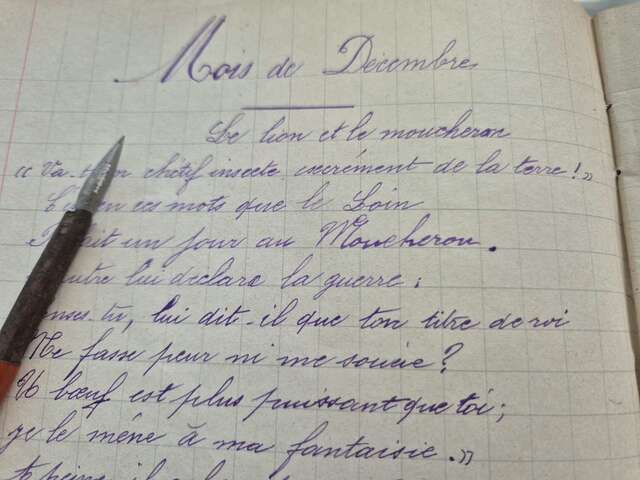 Mois de Décembre
Le lion et le moucheron
« Va-t'en chétif insecte, excrément de la terre! »
en ces mots que le Loin
un jour au Moucheron.
lui déclara la guerre;
tu, lui dit-il que ton titre de roi
Me fasse peur ni me soucie?
Un bœuf est plus puissant que toi;
je le mène à ma fantaisie. »
il